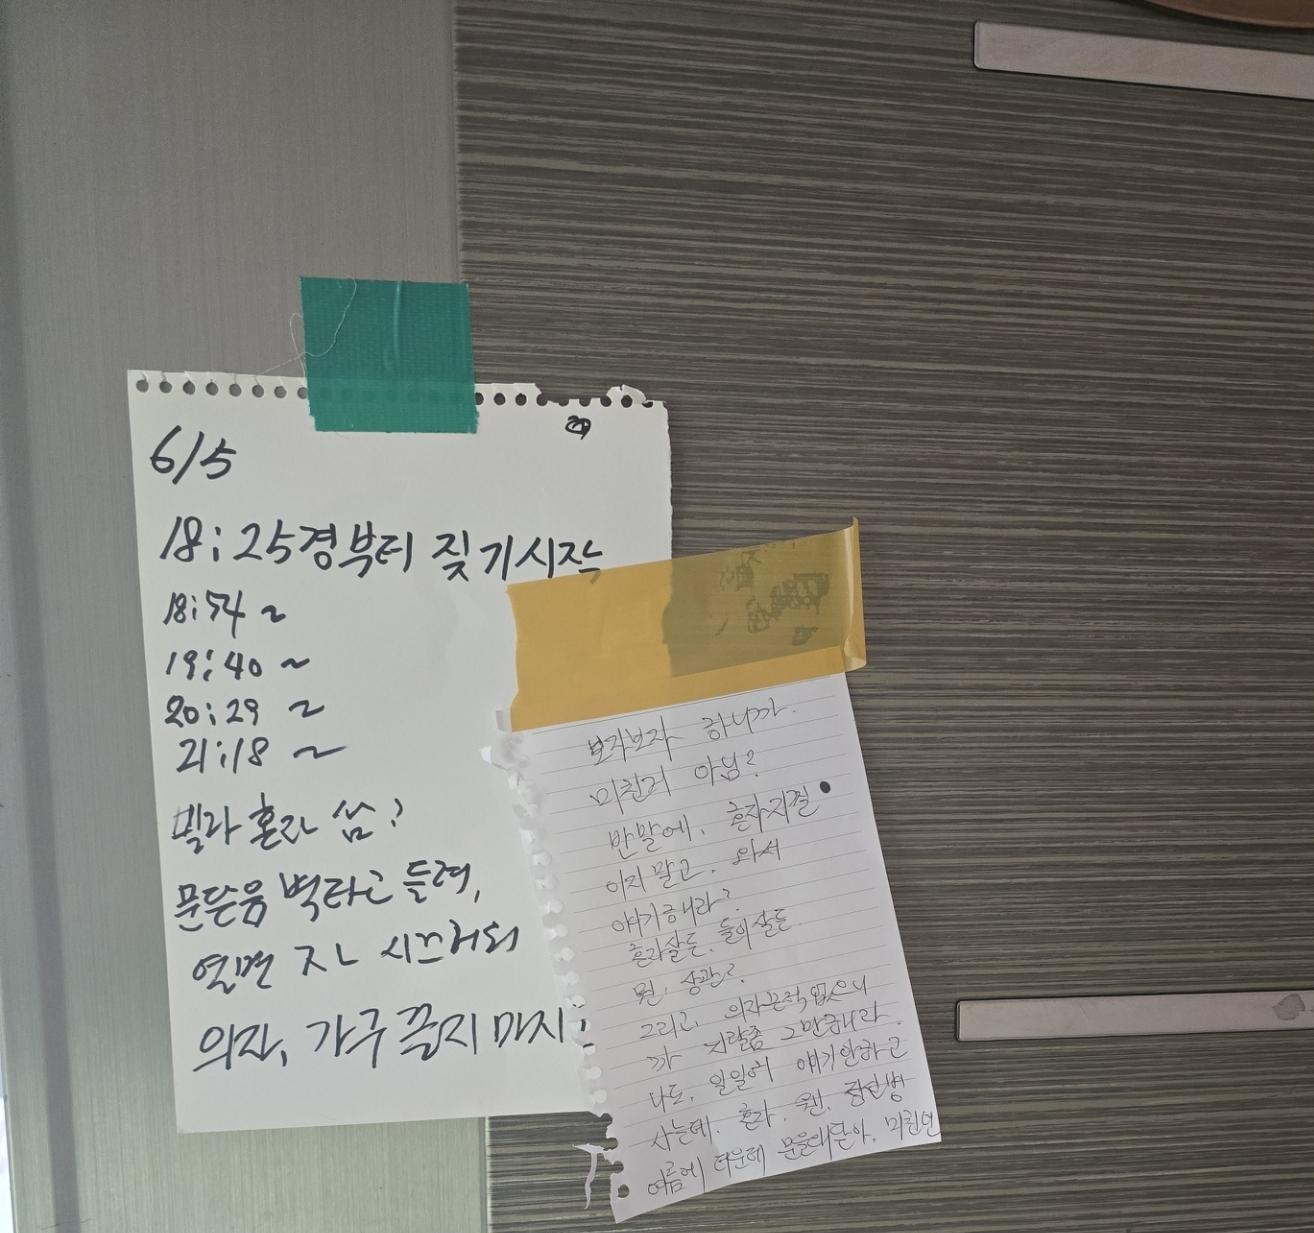 6/5
18:25경부터 짖기시작
18:54 ~
19:40 ~
20:29 ~
21:18 ~
빌라 혼자 삼?
문닫음 벽타고 들려,
열면 지ㄴ 시끄러워
의자, 가구 끌지 마시
보자보자 하니까.
미친거 아님?
반말에. 혼자지랄
이지 말고. 와서
얘기하니라?
혼자살든. 둘이살든
뭔. 상관?
그리고, 의자끈적없으니
까 지랄좀 그만하니라.
나도. 일일이 얘기안하고
사는데. 혼자. 웬.
여름에 더운데 문을왜닫아. 미친년